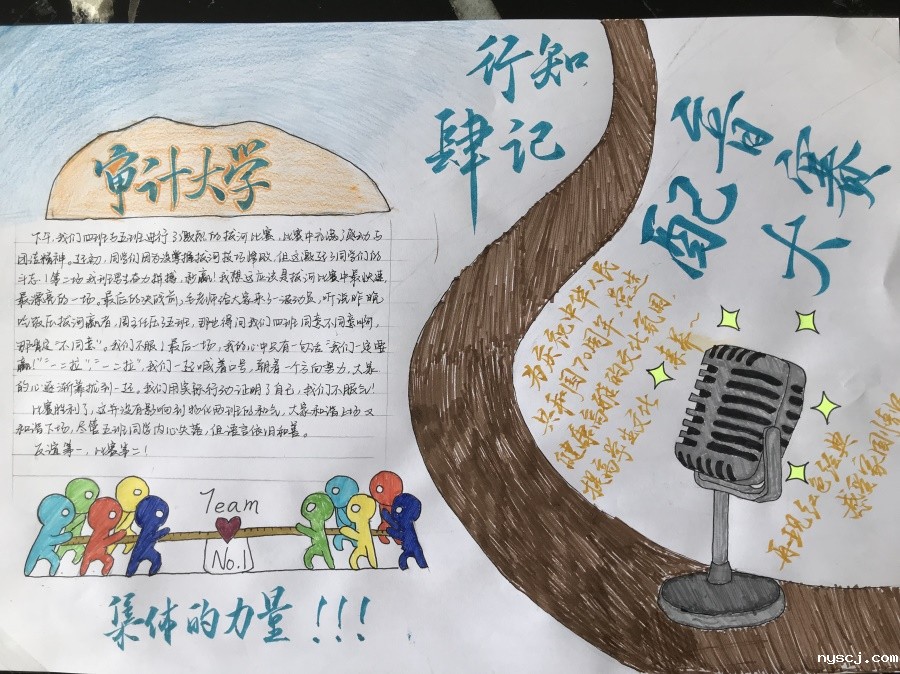 行知
肆记
审计大学
下午,我们四班与五班进行了激烈的拔河比赛,比赛中充满了激动与
团结精神。起初,同学们因为没掌握拔河技巧惨败,但这激起了同学们的
斗志!第二场我班男生奋力拼搏,赢!我想这应该是拔河比赛中最快速
最漂亮的一场。最后的决战前,毛老师给大家来了一波动员,听说昨晚
六班在拔河赢者,周主任压五班,那也得问我们四班同意不同意啊,
那肯定“不同意”。我们不服!最后一场,我的心中只有一句话“我们一定要
赢!”“一二拉”,“一二拉”,我们一起喊着口号,朝着一个方向努力,大家
的心逐渐靠拢到一起。我们用实际行动证明了自己,我们不服气!
比赛胜利了,这并没有影响到物化两班的和气,大家和谐上场又
和谐下场,尽管五班同学内心失落,但语言依旧和善。
友谊第一,比赛第二!
Team
No.1
集体的力量!!!
配音
大赛
为庆祝中华人民
共和国70周年,营造
健康高雅的文化氛围,
提高学生文化素养~
再现红色经典
热爱家国情
nyscj.com